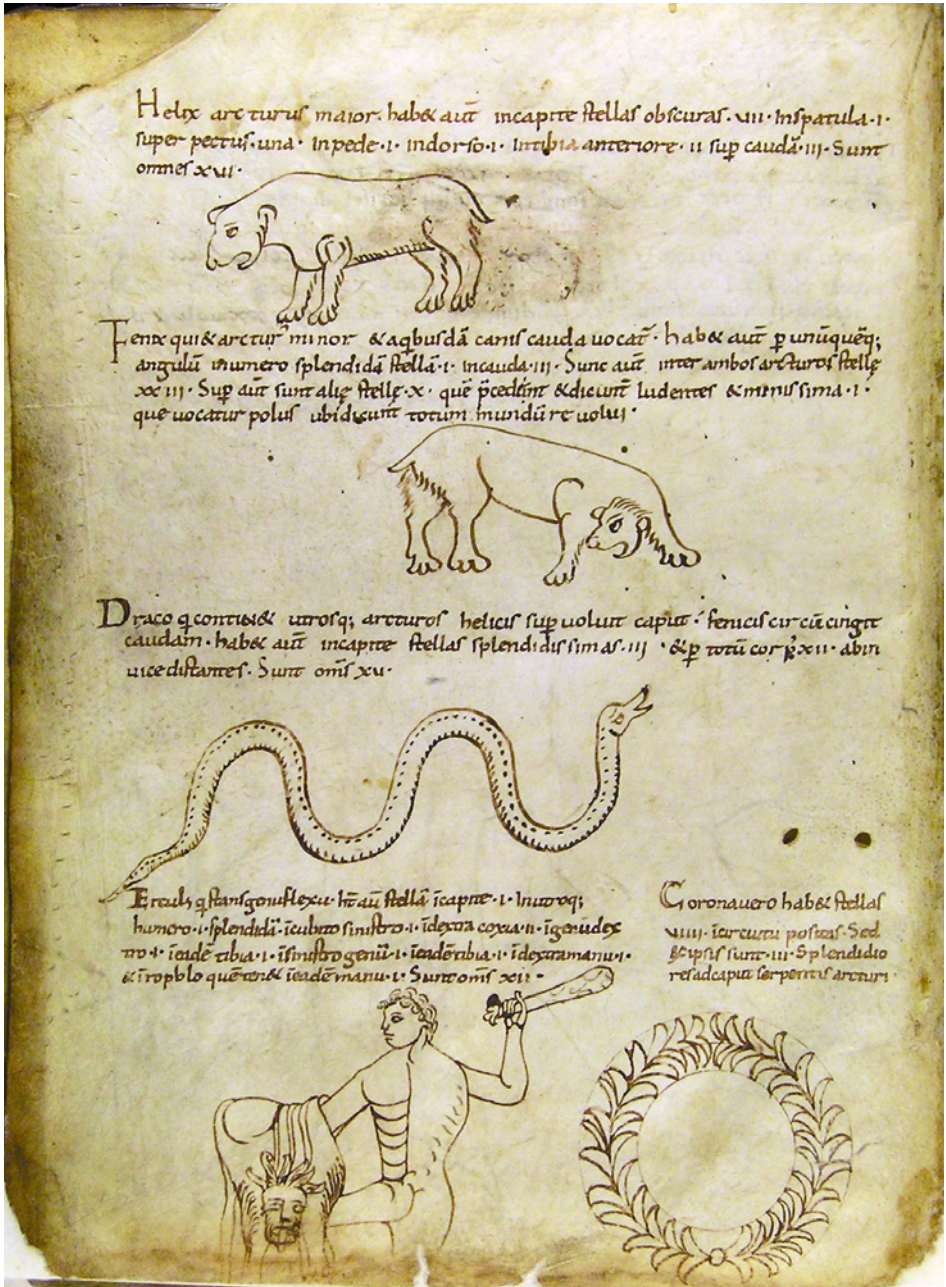 Helix arcturus maior. hab& aut̄ incapite stellas obscuras. vii. Inspatula.i.
super pectus.una. inpede.i. indorso.i. intibia anteriore. ii sup̄ caudā.iii. Sunt
omnes xvi.
Fenix qui& arctur᾽ minor &aqbusdā canis cauda uocat̄. hab& aut̄ p unūquēq;
angulū innumero splendidā stellā.i. incauda.iii. Sunc aut̄ inter ambos arcturos stellę
xxiii. Sup̄ aut̄ sunt alię stellę.x. quę p̄cedunt &dicunt̄ ludentes &minissima.i.
que uocatur polus ubi dicunt totum mundū reuolui.
Draco q contin& utrosq; arcturos helicis sup̄ uoluit caput. fenicis circū cingit
caudam. hab& aut̄ incapite stellas splendidissimas.iii. &p totū corp᾽ xii. abin
uice distantes. Sunt om̄s xv.
Erculis q stans genuflexu. h̄t aū stellā īcapite.i. Inutroq;
humero.i. splendidā. īcubito sinistro.i. īdextra coxa.ii. īgenu dex
tro.i. ieadē tibia.i. īsinistro genu.i. ieadē tibia.i. īdextra manu.i.
ieadē manu.i. Sunt om̄s xii.
Corona uero hab& stellas
viiii. īcircuitu positas. Sed
&ipsis sunt.iii. Splendidio
res ad caput serpentis arcturi.